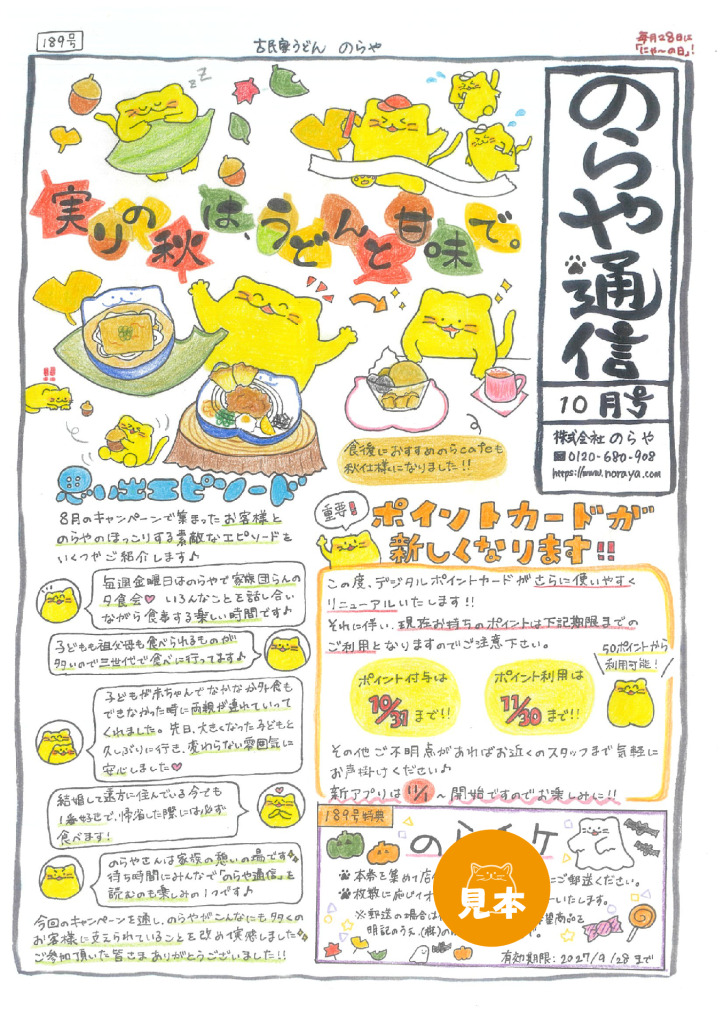 189号
古民家うどん のらや
毎月28日は
「にゃ〜の日」!
のらや通信
10月号
株式会社 のらや
0120-680-908
https://www.noraya.com
実りの秋は、うどんと甘味で。
食後におすすめのらこのたも
秋仕様になりました!!
思い出エピソード
8月のキャンペーンで集まったお客様と
のらやのほっこりする素敵なエピソードを
いくつかご紹介します♪
毎週金曜日はのらやで家族団らんの
夕食会♡ いろんなことを話し合い
ながら食事する楽しい時間です♪
子どもも祖父母も食べられるものが
多いので三世代で食べに行ってます♪
子どもが赤ちゃんでなかなか外食も
できなかった時に両親が連れていって
くれました。先日、大きくなった子どもと
久しぶりに行き、変わらない雰囲気に
安心しました♡
結婚して遠方に住んでいる今でも
1番好きで、帰省した際には必ず
食べます!
のらやさんは家族の憩いの場です
待ち時間にみんなで「のらや通信」を
読むのも楽しみの1つです♪
今回のキャンペーンを通し、のらやがこんなにも多くの
お客様に支えられていることを改め実感しました
ご参加頂いた皆さまありがとうございました!!
重要!
ポイントカードが
新しくなります!!
この度、デジタルポイントカードがさらに使いやすく
リニューアルいたします!!
それに伴い、現在お持ちのポイントは下記期限までの
ご利用となりますのでご注意下さい。
50ポイントから
利用可能!
ポイント付与は
10/31まで!!
ポイント利用は
11/30まで!!
その他ご不明点があればお近くのスタッフまで気軽に
お声掛けください♪
新アプリは11/1〜開始ですのでお楽しみに!!
189号特典
のらイケ
本券を集めて店 にご郵送ください。
枚数に応じイオ ーいたします。
※郵送の場合は 望商品を
明記のうえ、(株)の
見本
有効期限:2027/9/28まで